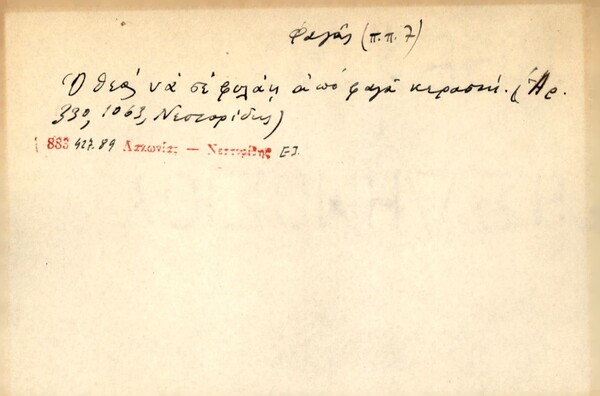 φαγᾶς (π.π. 7)
Ὁ θεός νά σέ φυλάῃ ἀπό φαγᾶ κεραστή. (Ἀρ.
330, 1063, Νεστορίδης)
883 427.89 Λακωνίας — Νεστορίδης